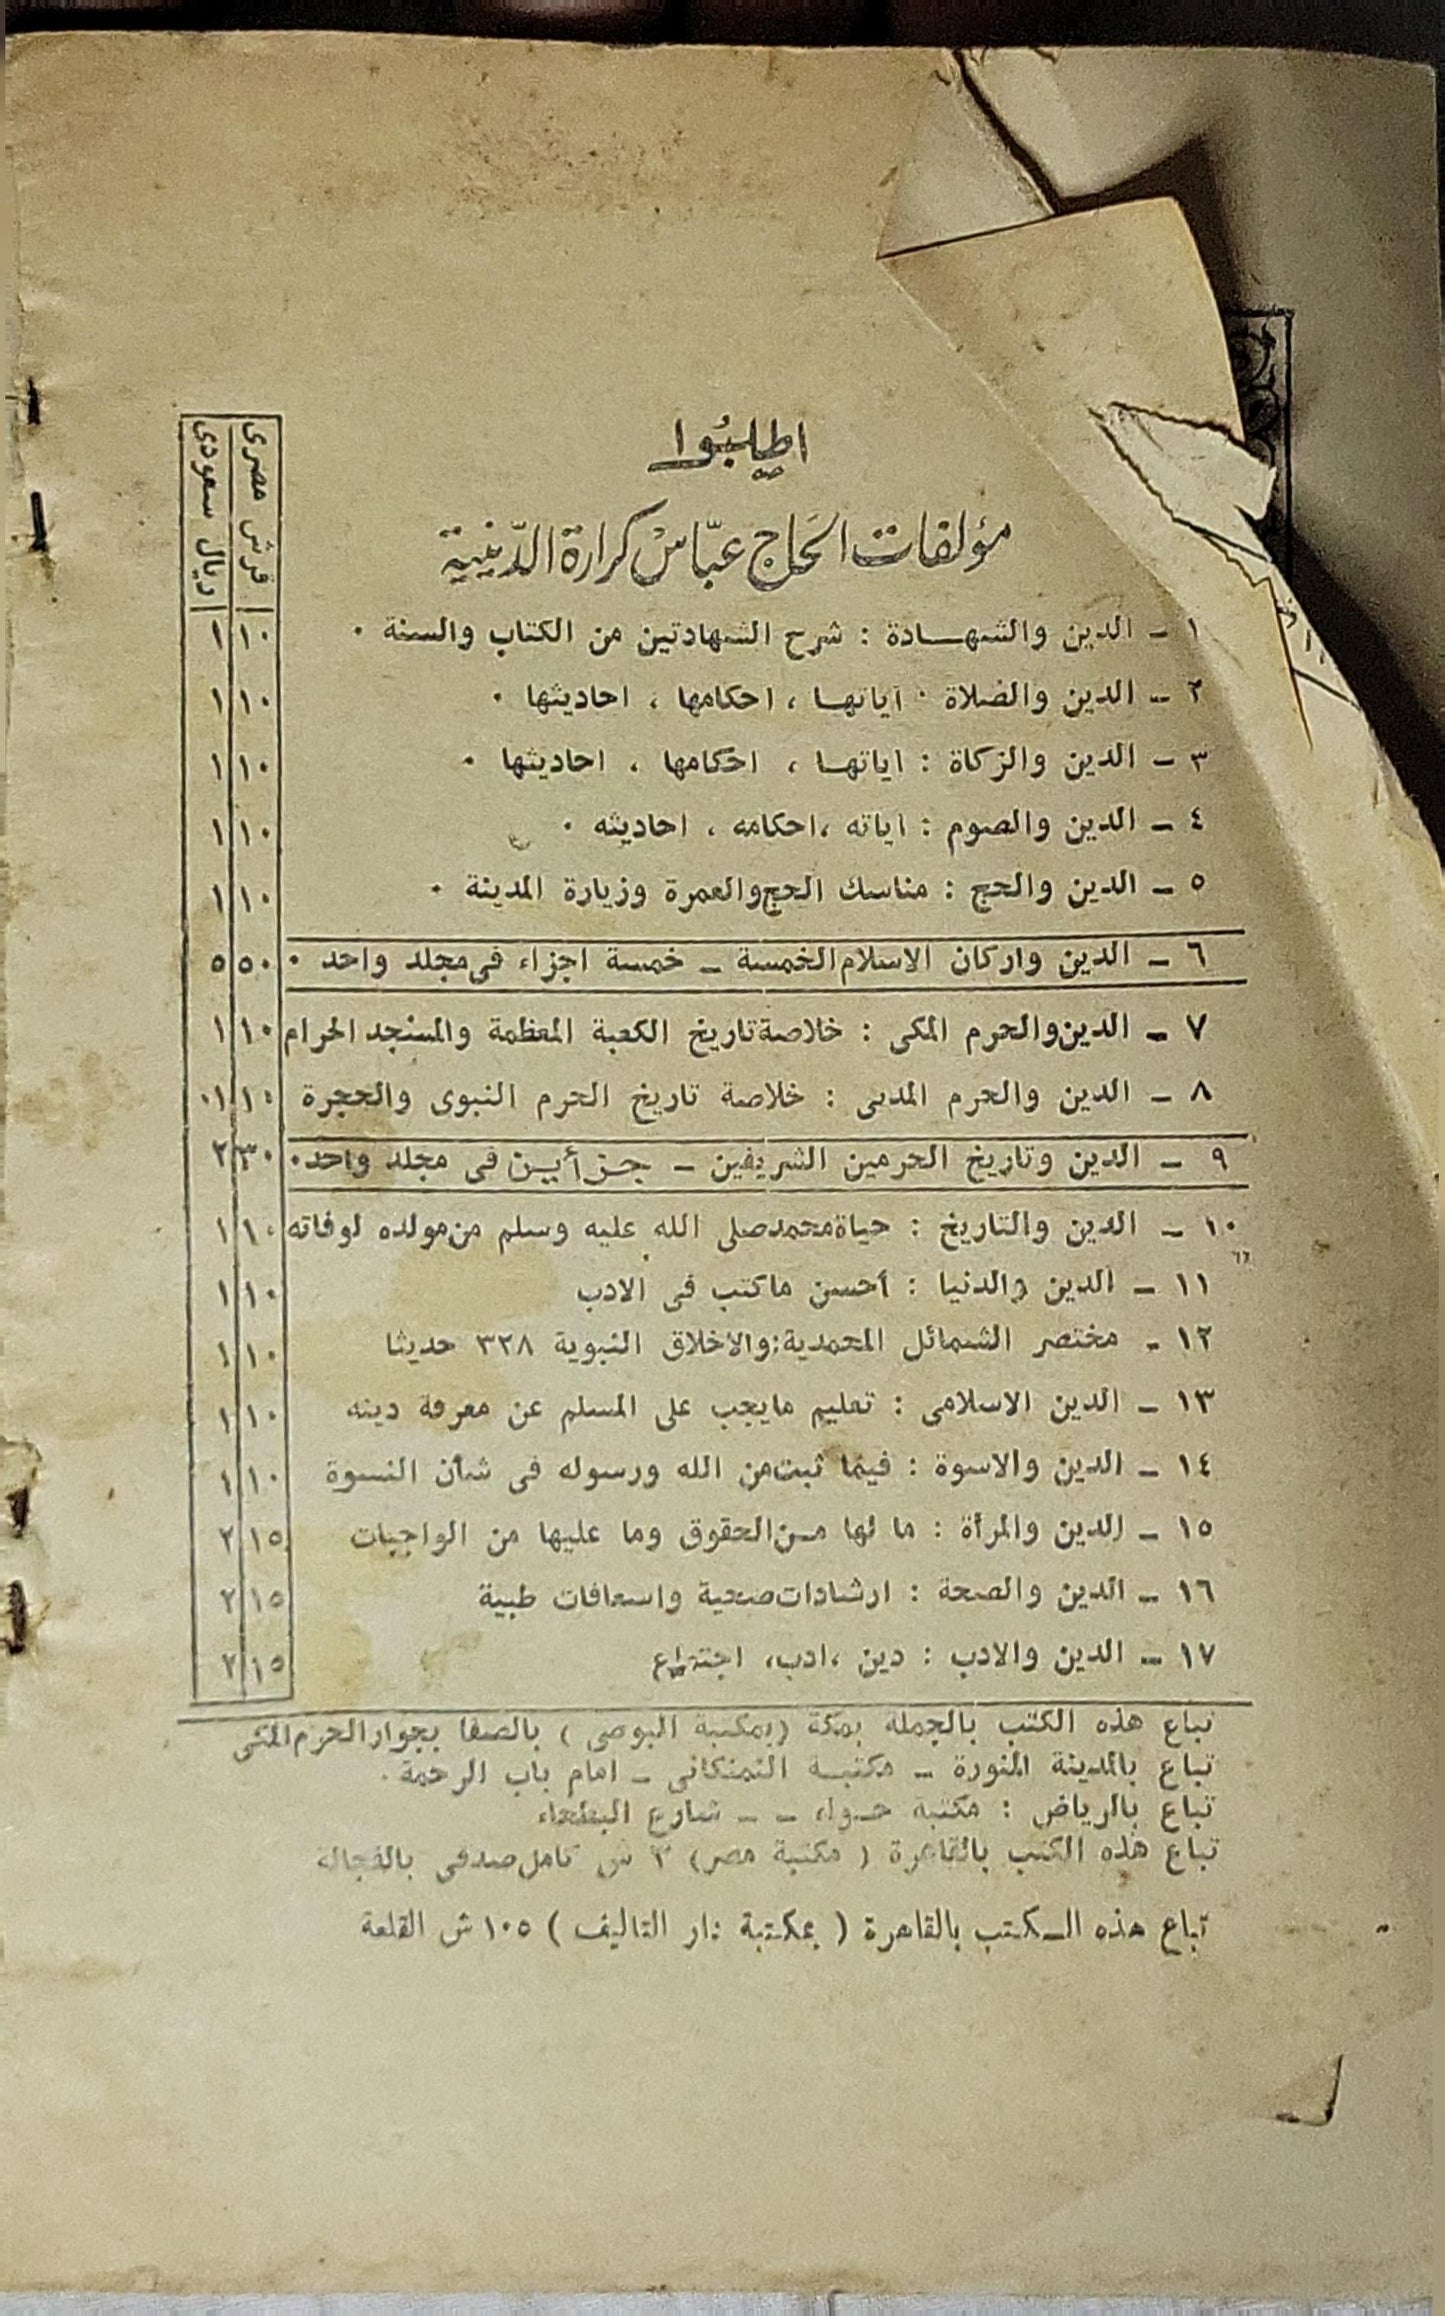 اطلبُوا
مؤلفات الحَاج عبّاسْ كرارة الدّينية
قرش مصرى
ريال سعودى
١ – الدين والشهــادة : شرح الشهادتين من الكتاب والسنة ٠ ١٠ ١
٢ – الدين والصلاة ٠ اياتهـا ، احكامها ، احاديثها ٠ ١٠ ١
٣ – الدين والزكاة : اياتهـا ، احكامها ، احاديثها ٠ ١٠ ١
٤ – الدين والصوم : اياته ،احكامه ، احاديثه ٠ ١٠ ١
٥ – الدين والحج : مناسك الحج والعمرة وزيارة المدينة ٠ ١٠ ١
٦ – الدين واركان الاسلام الخمسة – خمسة اجزاء فى مجلد واحد ٠ ٥٠ ٥
٧ – الدين والحرم المكى : خلاصة تاريخ الكعبة المعظمة والمسجد الحرام ١٠ ١
٨ – الدين والحرم المدنى : خلاصة تاريخ الحرم النبوى والحجرة ١٠ ١
٩ – الدين وتاريخ الحرمين الشريفين – جـزأيـن فى مجلد واحد٠ ٣٠ ٢
١٠ – الدين والتاريخ : حياة محمد صلى الله عليه وسلم من مولده لوفاته ١٠ ١
١١ – الدين والدنيا : أحسن ماكتب فى الادب ١٠ ١
١٢ – مختصر الشمائل المحمدية:والاخلاق النبوية ٣٢٨ حديثا ١٠ ١
١٣ – الدين الاسلامى : تعليم مايجب على المسلم عن معرفة دينه ١٠ ١
١٤ – الدين والاسوة : فيما ثبت من الله ورسوله فى شأن النسوة ١٠ ١
١٥ – الدين والمرأة : ما لها مـن الحقوق وما عليها من الواجبات ١٥ ٢
١٦ – الدين والصحة : ارشادات صحية واسعافات طبية ١٥ ٢
١٧ – الدين والادب : دين ،ادب، اجتماع ١٥ ٢
تباع هذه الكتب بالجملة بمكة (بمكتبة البوصى ) بالصفا بجوار الحرم المكى
تباع بالمدينة المنورة – مكتبـة النمنكانى – امام باب الرحمة ٠
تباع بالرياض : مكتبة حـواء – – شارع البطحاء
تباع هذه الكتب بالقاهرة ( مكتبة مصر) ٣ ش كامل صدقى بالفجالة
تباع هذه الـكتب بالقاهرة ( بمكتبة دار التاليف ) ١٠٥ ش القلعة